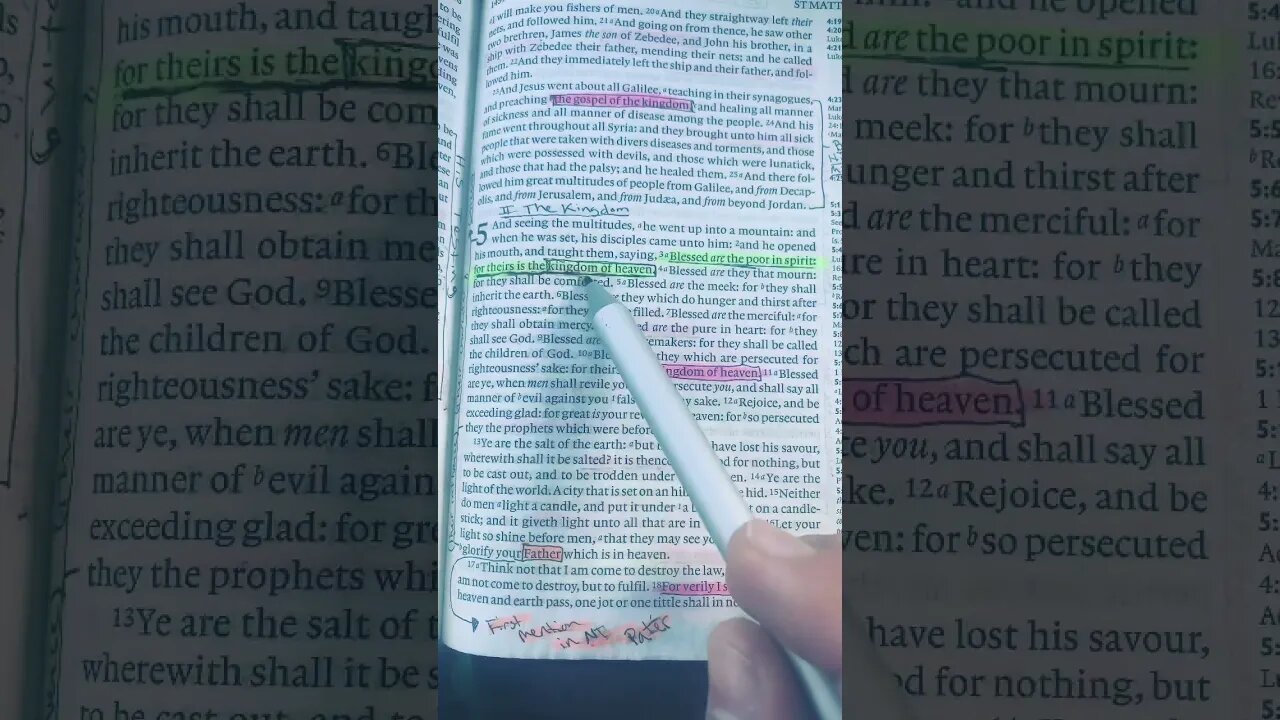 his mouth, and taugh
for theirs is the king
for they shall be com
inherit the earth. 6Ble
righteousness: a for th
they shall obtain me
shall see God. 9Blesse
the children of God.
righteousness' sake: f
are ye, when men shall
manner of b evil again
exceeding glad: for gr
they the prophets whi
13Ye are the salt of t
wherewith shall it be s
ST MATT
will make you fishers of men. 20a And they straightway left their
nets, and followed him. 21a And going on from thence, he saw other
two brethren, James the son of Zebedee, and John his brother, in a
ship with Zebedee their father, mending their nets; and he called
them. 22And they immediately left the ship and their father, and fol-
lowed him.
23And Jesus went about all Galilee, a teaching in their synagogues,
and preaching the gospel of the kingdom, and healing all manner
of sickness and all manner of disease among the people. 24And his
fame went throughout all Syria: and they brought unto him all sick
people that were taken with divers diseases and torments, and those
which were possessed with devils, and those which were lunatick,
and those that had the palsy; and he healed them. 25a And there fol-
lowed him great multitudes of people from Galilee, and from Decap-
olis, and from Jerusalem, and from Judæa, and from beyond Jordan.
II The Kingdom
5 And seeing the multitudes, a he went up into a mountain: and
when he was set, his disciples came unto him: 2and he opened
his mouth, and taught them, saying, 3a Blessed are the poor in spirit:
for theirs is the kingdom of heaven. 4a Blessed are they that mourn:
for they shall be comforted. 5a Blessed are the meek: for b they shall
inherit the earth. 6Bless they which do hunger and thirst after
righteousness: a for they filled. 7Blessed are the merciful: a for
they shall obtain mercy. ed are the pure in heart: for b they
shall see God. 9Blessed are emakers: for they shall be called
the children of God. 10a Ble they which are persecuted for
righteousness' sake: for their ngdom of heaven. 11a Blessed
are ye, when men shall revile you rsecute you, and shall say all
manner of b evil against you 1 fals y sake. 12a Rejoice, and be
exceeding glad: for great is your rew eaven: for b so persecuted
they the prophets which were befor
13Ye are the salt of the earth: a but have lost his savour,
wherewith shall it be salted? it is thence d for nothing, but
to be cast out, and to be trodden under en. 14a Ye are the
light of the world. A city that is set on an hil e hid. 15Neither
do men a light a candle, and put it under 1 a b t on a candle-
stick; and it giveth light unto all that are in 16Let your
light so shine before men, a that they may see yo
glorify your Father which is in heaven.
17a Think not that I am come to destroy the law,
am not come to destroy, but to fulfil. 18For verily I s
heaven and earth pass, one jot or one tittle shall in
First mention
in NT Pater
are the poor in spirit:
are they that mourn:
meek: for b they shall
unger and thirst after
are the merciful: a for
re in heart: for b they
or they shall be called
ch are persecuted for
of heaven. 11a Blessed
e you, and shall say all
ke. 12a Rejoice, and be
ven: for b so persecuted
have lost his savour,
d for nothing, but